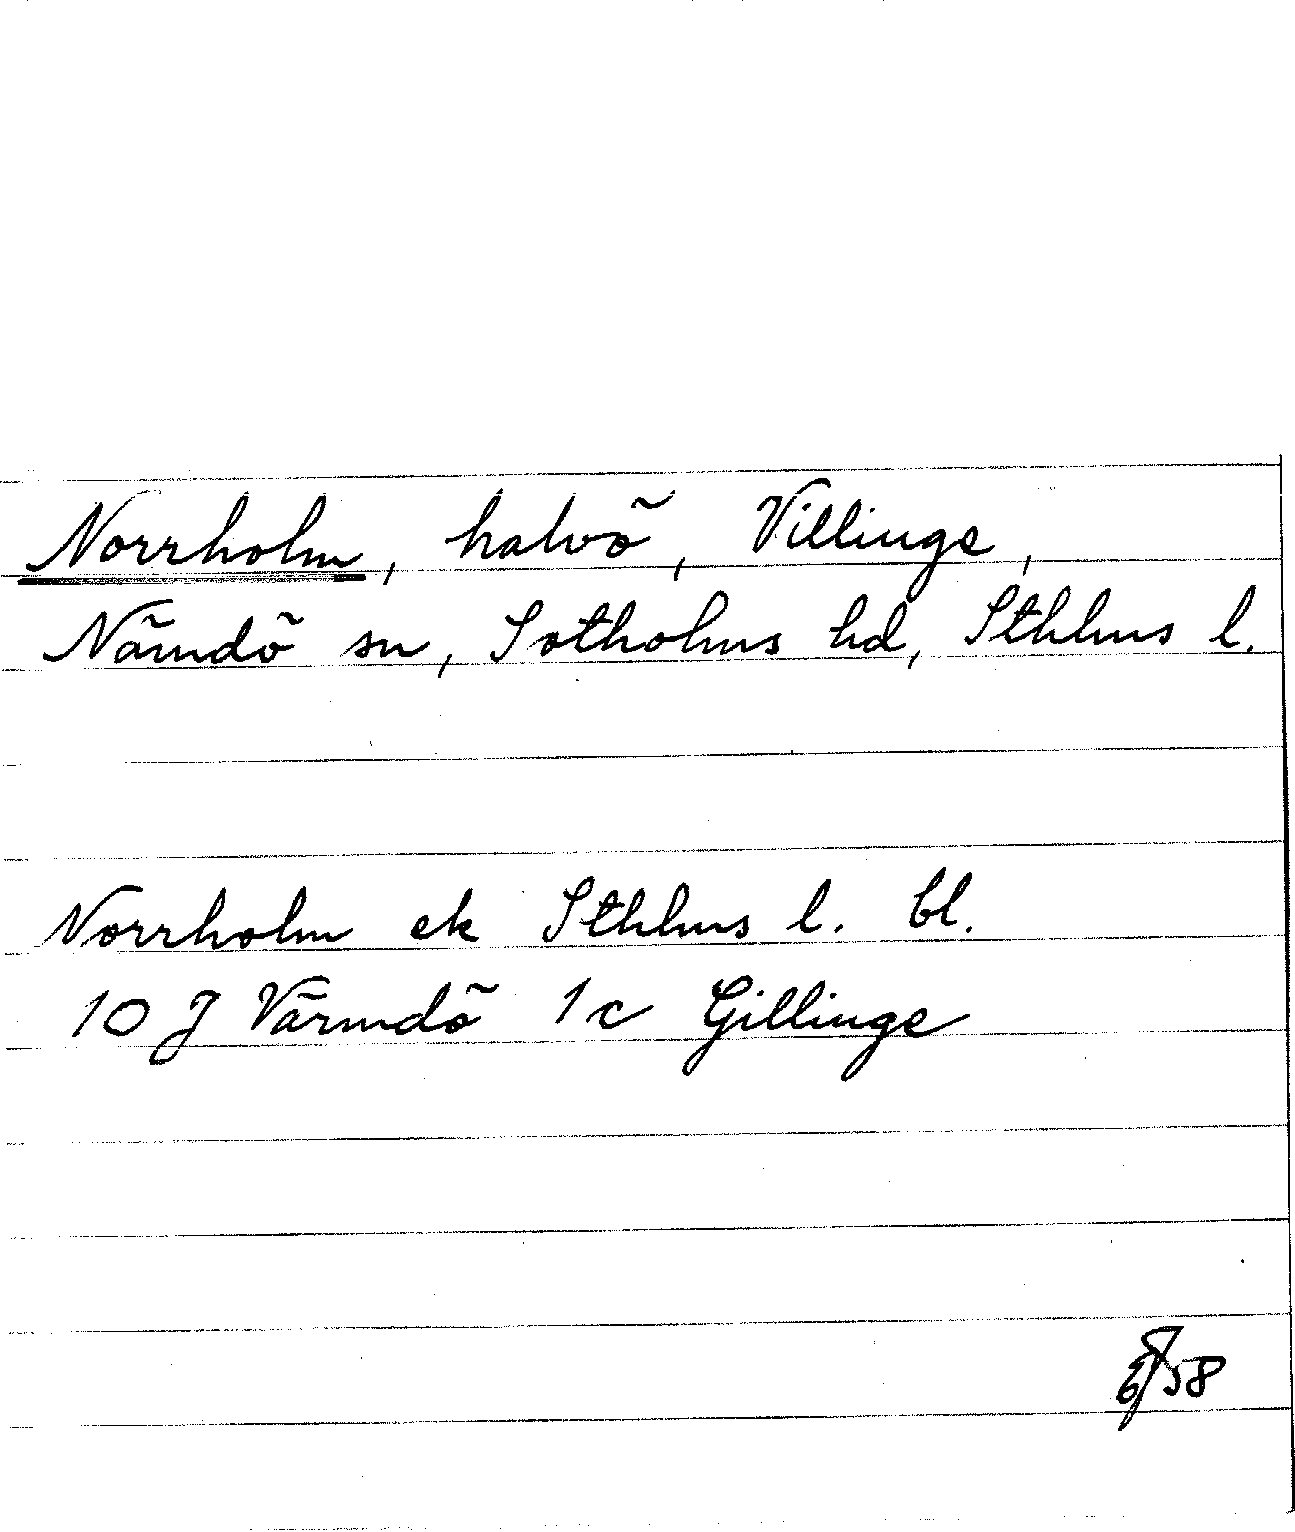 Norrholm, halvö, Villinge,
Nämdö sn, Sotholms hd, Sthlms l.
Norrholm ek Sthlms l. bl.
10 J Värmdö 1c Gillinge
58